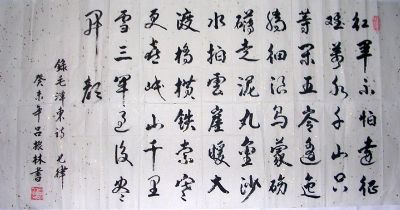 紅軍不怕遠征
難萬水千山只
等閑五嶺逶迤
騰細浪烏蒙磅
礴走泥丸金沙
水拍雲崖暖大
渡橋橫鐵索寒
更喜岷山千里
雪三軍過後盡
開顏
錄毛澤東詩 七律
癸未年吕振林書